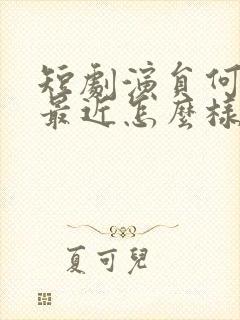 短劇演員何
最近怎麼樣
夏可兒